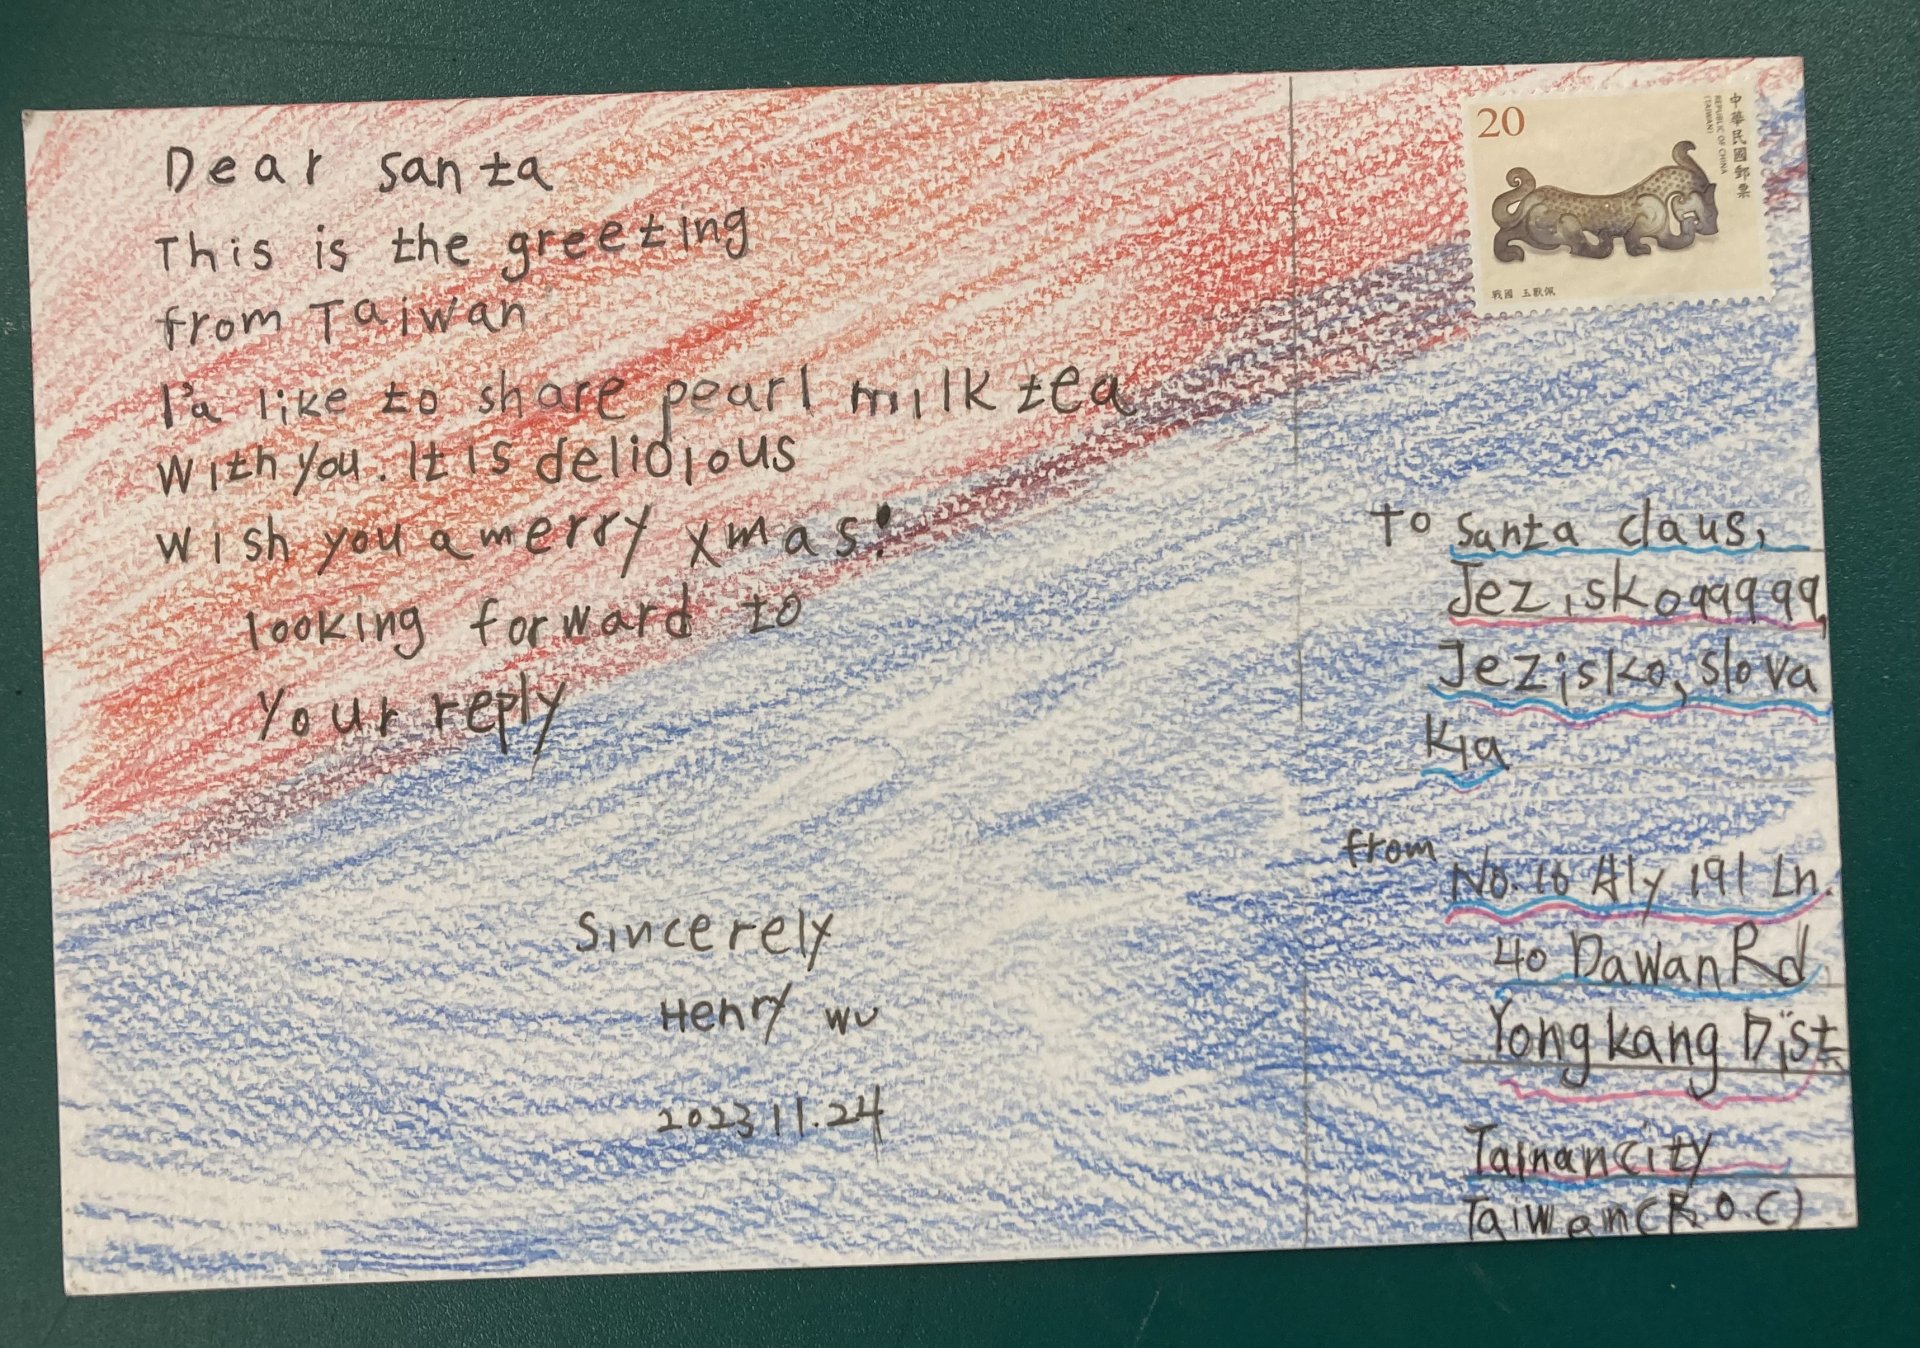 Dear santa
This is the greeting
from Taiwan
I'd like to share pearl milk tea
with you. It is delicious
wish you a merry xmas!
looking forward to
your reply
Sincerely
Henry wu
2023 11.24
20
中華民國郵票
REPUBLIC OF CHINA
(TAIWAN)
戰國 玉獸佩
To santa claus,
Jezisko 99999,
Jezisko, slova
kia
from
No. 16 Aly 191 Ln.
40 Dawan Rd
Yongkang Dist
Tainan city
Taiwan (R.O.C)